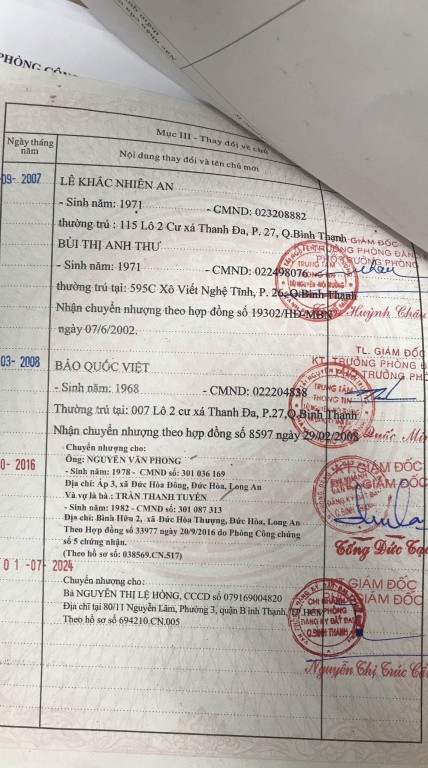 PHÒNG CÔN
Mục III - Thay đổi về chủ
Ngày tháng năm
Nội dung thay đổi và tên chủ mới
09- 2007
LÊ KHẮC NHIÊN AN
- Sinh năm: 1971 - CMND: 023208882
thường trú : 115 Lô 2 Cư xá Thanh Đa, P. 27, Q.Bình Thạnh
BÙI THỊ ANH THƯ
- Sinh năm: 1971 - CMND: 022498076
thường trú tại: 595C Xô Viết Nghệ Tĩnh, P. 26, Q.Bình Thạnh
Nhận chuyển nhượng theo hợp đồng số 19302/HĐ-MBN
ngày 07/6/2002.
GIÁM ĐỐC
PHÓ TRƯỞNG PHÒNG
TRUNG TÂM
THÔNG TIN
Huỳnh Châu
03- 2008
BẢO QUỐC VIỆT
- Sinh năm: 1968 - CMND: 022204838
Thường trú tại: 007 Lô 2 cư xá Thanh Đa, P.27,Q.Bình Thạnh
Nhận chuyển nhượng theo hợp đồng số 8597 ngày 29/02/2008
TL. GIÁM ĐỐC
KT. TRƯỞNG PHÒNG Đ
TRƯỞNG PHÒNG
TRUNG TÂM
THÔNG TIN
Quốc Min
0- 2016
Chuyển nhượng cho:
Ông: NGUYỄN VĂN PHONG
- Sinh năm: 1978 - CMND số: 301 036 169
Địa chỉ: Ấp 3, xã Đức Hòa Đông, Đức Hòa, Long An
Và vợ là bà : TRẦN THANH TUYỀN
- Sinh năm: 1982 - CMND số: 301 087 313
Địa chỉ: Bình Hữu 2, xã Đức Hòa Thượng, Đức Hòa, Long An
Theo Hợp đồng số 33977 ngày 20/9/2016 do Phòng Công chứng
số 5 chứng nhận.
(Theo hồ sơ số: 038569.CN.517)
GIÁM ĐỐC
ĐĂNG KÝ ĐẤT ĐAI
Tống Đức Tạ
01 -07- 2024
Chuyển nhượng cho:
Bà NGUYỄN THỊ LỆ HỒNG, CCCD số 079169004820
Địa chỉ tại 80/11 Nguyễn Lâm, Phường 3, quận B ình Thạnh, TP.HCM
Theo hồ sơ số 694210.CN.005
GIÁM ĐỐC
CHI NHÁNH
VĂN PHÒNG
ĐĂNG KÝ ĐẤT ĐAI
Q.BÌNH THẠNH
Nguyễn Thị Trúc Cẩ